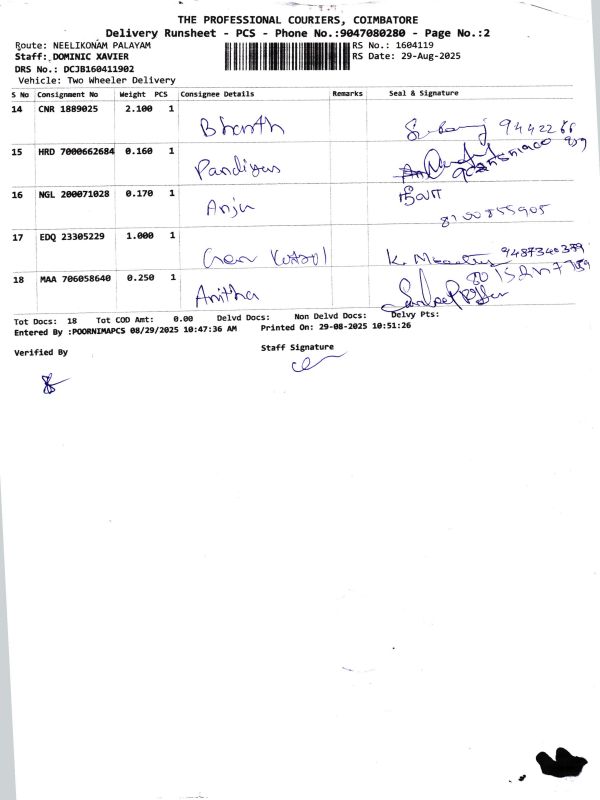 THE PROFESSIONAL COURIERS, COIMBATORE
Delivery Runsheet - PCS - Phone No.:9047080280 - Page No.:2
Route: NEELIKONAM PALAYAM RS No.: 1604119
Staff: DOMINIC XAVIER RS Date: 29-Aug-2025
DRS No.: DCJB160411902
Vehicle: Two Wheeler Delivery
S No Consignment No Weight PCS Consignee Details Remarks Seal & Signature
14 CNR 1889025 2.100 1 Bharath
15 HRD 7000662684 0.160 1 Pandiyan
16 NGL 200071028 0.170 1 Anju
8100855905
17 EDQ 23305229 1.000 1
18 MAA 706058640 0.250 1 Anitha
Tot Docs: 18 Tot COD Amt: 0.00 Delvd Docs: Non Delvd Docs: Delvy Pts:
Entered By :POORNIMAPCS 08/29/2025 10:47:36 AM Printed On: 29-08-2025 10:51:26
Verified By Staff Signature